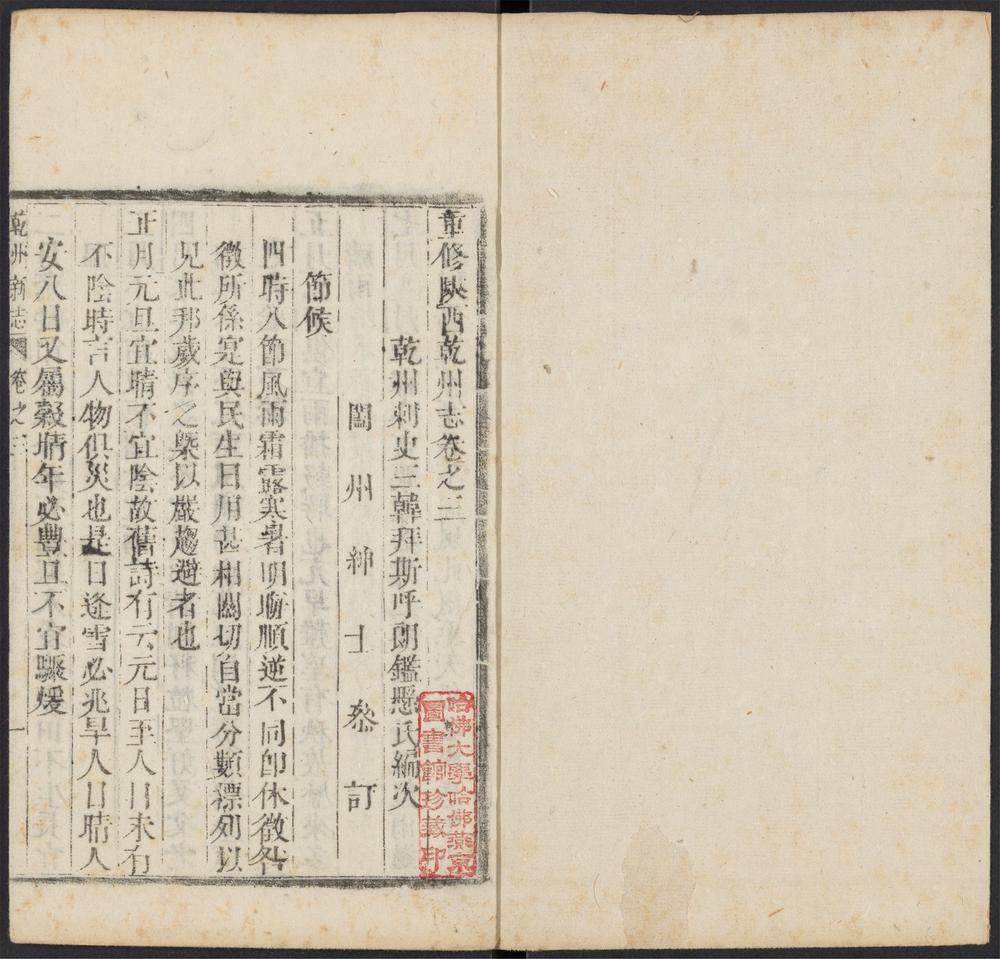 重修陝西乾州志卷之三
乾州刺史三韓拜斯呼朗鑑懸氏編次
闔州紳士叅訂
節候
四時八節風雨霜露寒暑明晦順逆不同卽休徵咎
徵所係寔與民生日用甚相關切自當分𩔖標列以
見此邦歲序之槩以嚴趨避者也
正月元旦宜晴不宜陰故舊詩有云元日至人日未有
不陰時言人物俱災也是日逢雪必兆旱人日晴人
安八日又屬穀晴年必豐且不宜驟煖
乾州新志 卷之三 一
哈佛大學哈佛燕京
圖書館珍藏印